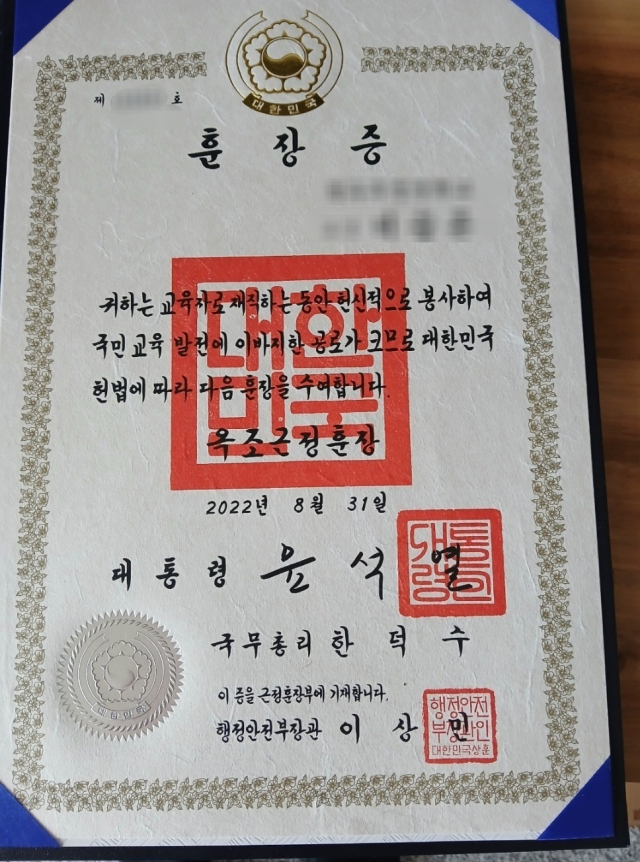 대한민국
제 호
훈장증
귀하는 교육자로 재직하는 동안 헌신적으로 봉사하여
국민 교육 발전에 이바지한 공로가 크므로 대한민국
헌법에 따라 다음 훈장을 수여합니다.
대한
민국
옥조근정훈장
2022년 8월 31일
대통령 윤석열
대통
령인
국무총리 한덕수
이 증을 근정훈장부에 기재합니다.
행정안전부장관 이상민
행정안전
부장관인
대한민국상훈
대한민국